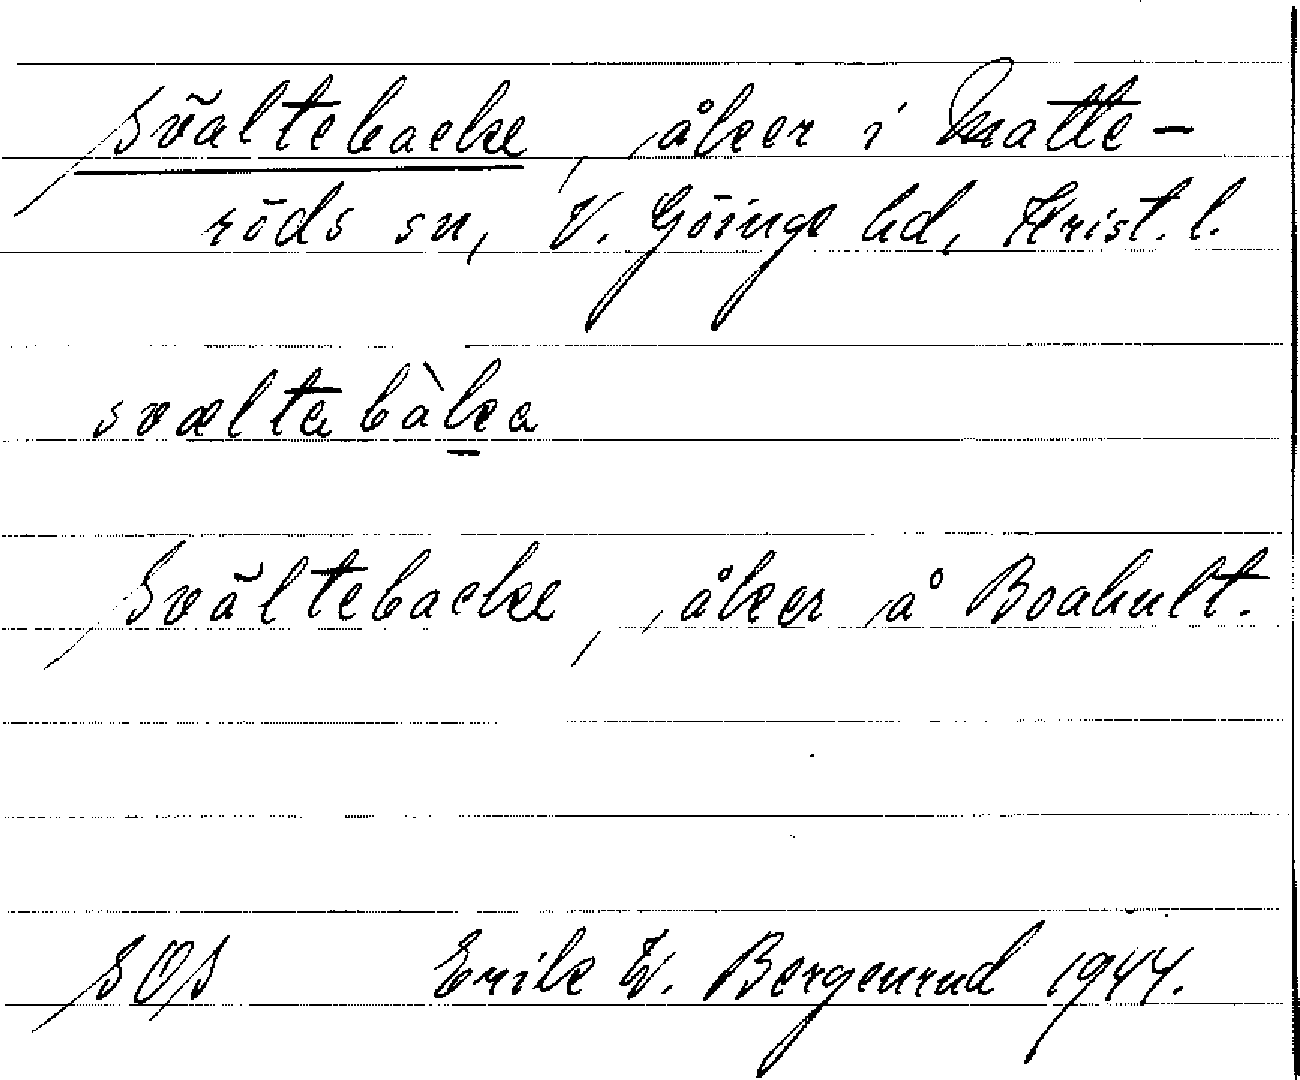 Svältebacke, åker i Matte-
röds sn, V. Göinge hd, Krist. l.
svæltabàka
Svältebacke, åker å Boahult.
SOS Erik W. Bergenrud 1944.